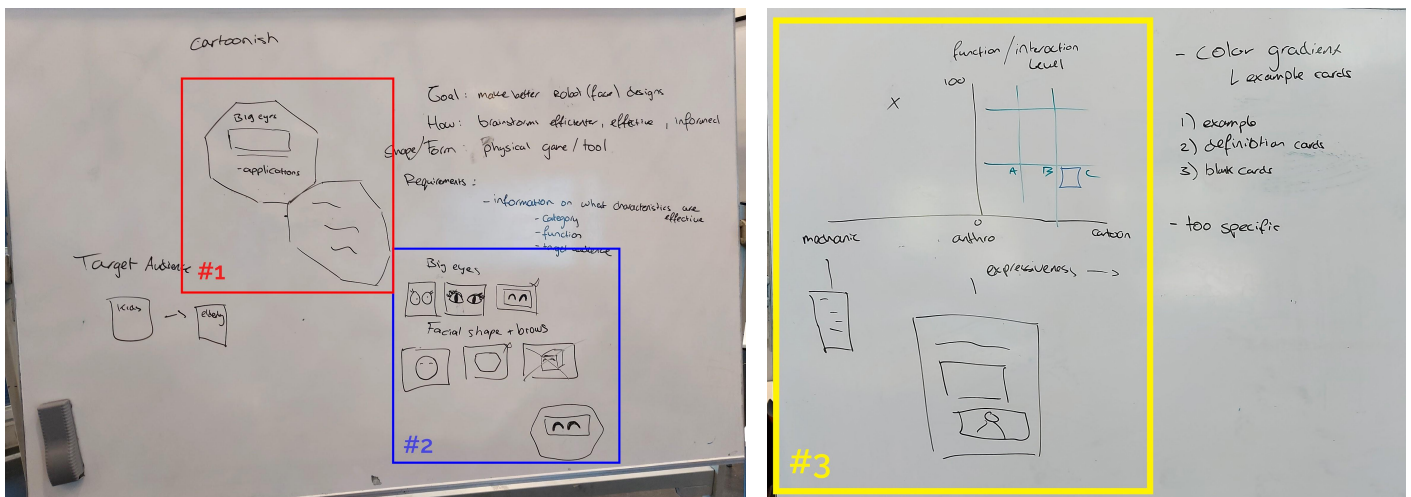 cartoonish
Big eyes
-applications
#1
Goal: make better Robot (face) designs
How: brainstorms efficienter, effective, informed
Shape/Form: physical game/tool
Requirements:
- information on what characteristics are effective
- category
- function
- target audience
Target Audience
Kids → elderly
Big eyes
Facial shape + brows
#2
function/interaction
Level
100
X
A B C
0
mechanic anthro cartoon
expressiveness →
#3
- color gradient
↳ example cards
1) example
2) definition cards
3) blank cards
- too specific